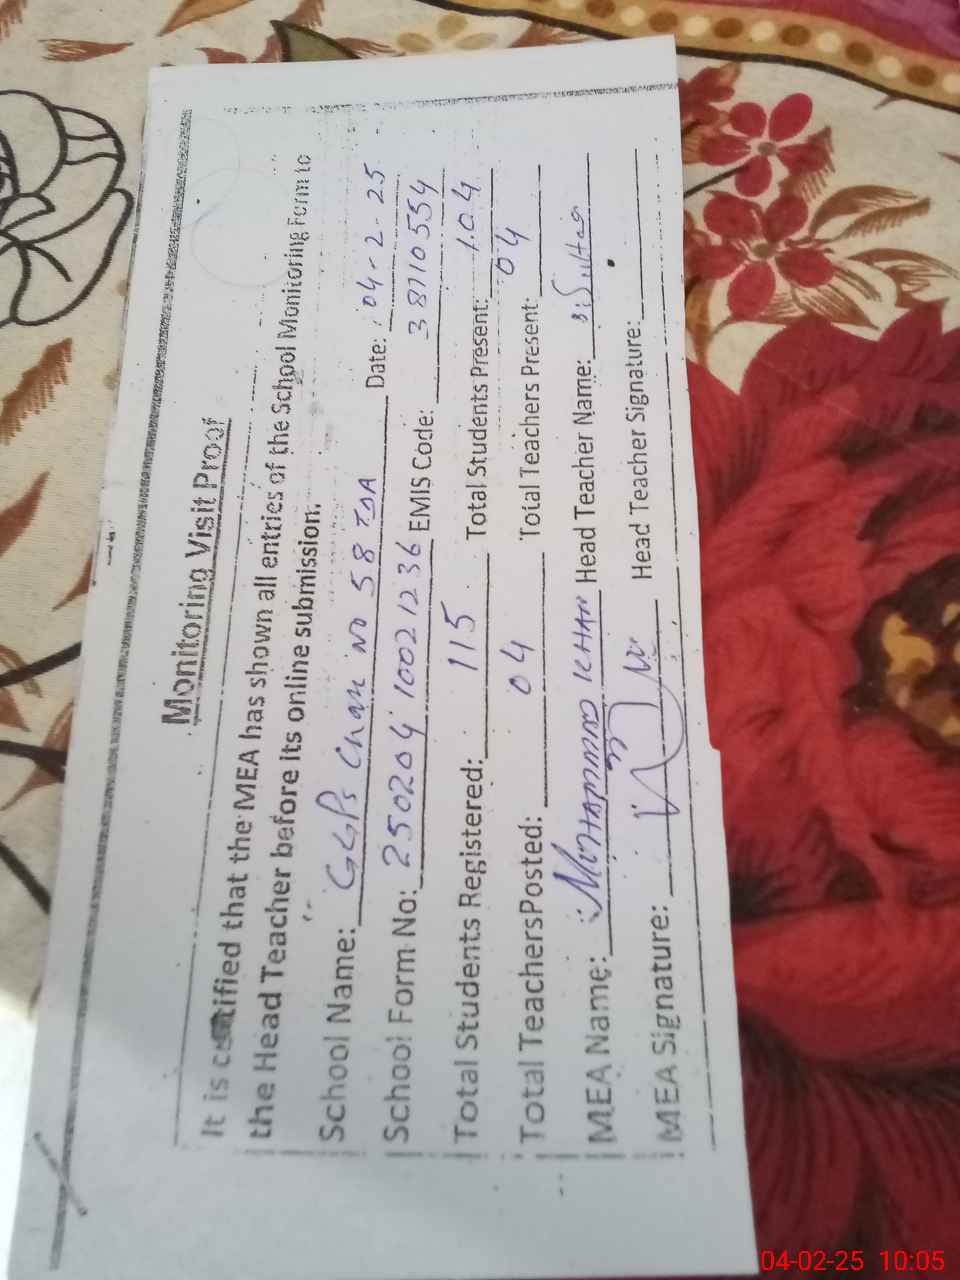 Monitoring Visit Proof
It is certified that the MEA has shown all entries of the School Monitoring Form to
the Head Teacher before its online submission.
School Name: GGPS Chak no 58 TDA Date: 04-2-25
School Form No: 250204 1002 1236 EMIS Code: 38710554
Total Students Registered: 115 Total Students Present: 104
Total TeachersPosted: 04 Total Teachers Present: 04
MEA Name: MUHAMMAD KHAN Head Teacher Name:
MEA Signature: Head Teacher Signature:
04-02-25 10:05